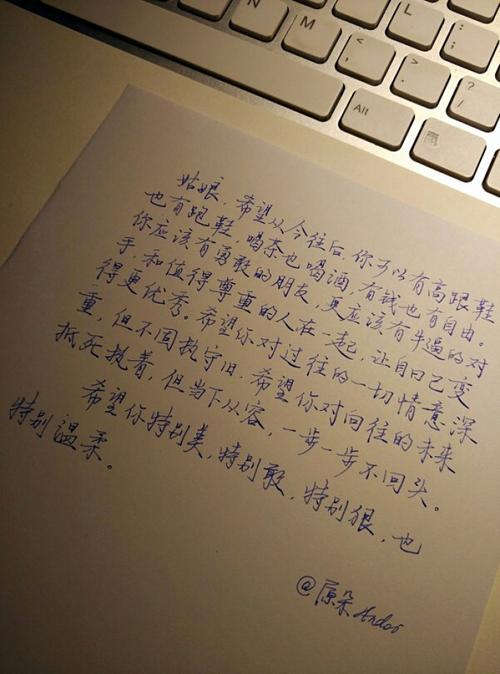 N
M
L
<
,
>
.
:
;
?
/
Alt
姑娘，希望从今往后，你可以有高跟鞋
也有跑鞋，喝茶也喝酒，有钱也有自由。
你应该有勇敢的朋友，更应该有牛逼的对
手，和值得尊重的人在一起，让自己变
得更优秀。希望你对过往的一切情意深
重，但不固执守旧，希望你对向往的未来
抵死执着，但当下从容，一步一步不回头。
希望你特别美，特别敢，特别狠，也
特别温柔。
@原朵Andoi